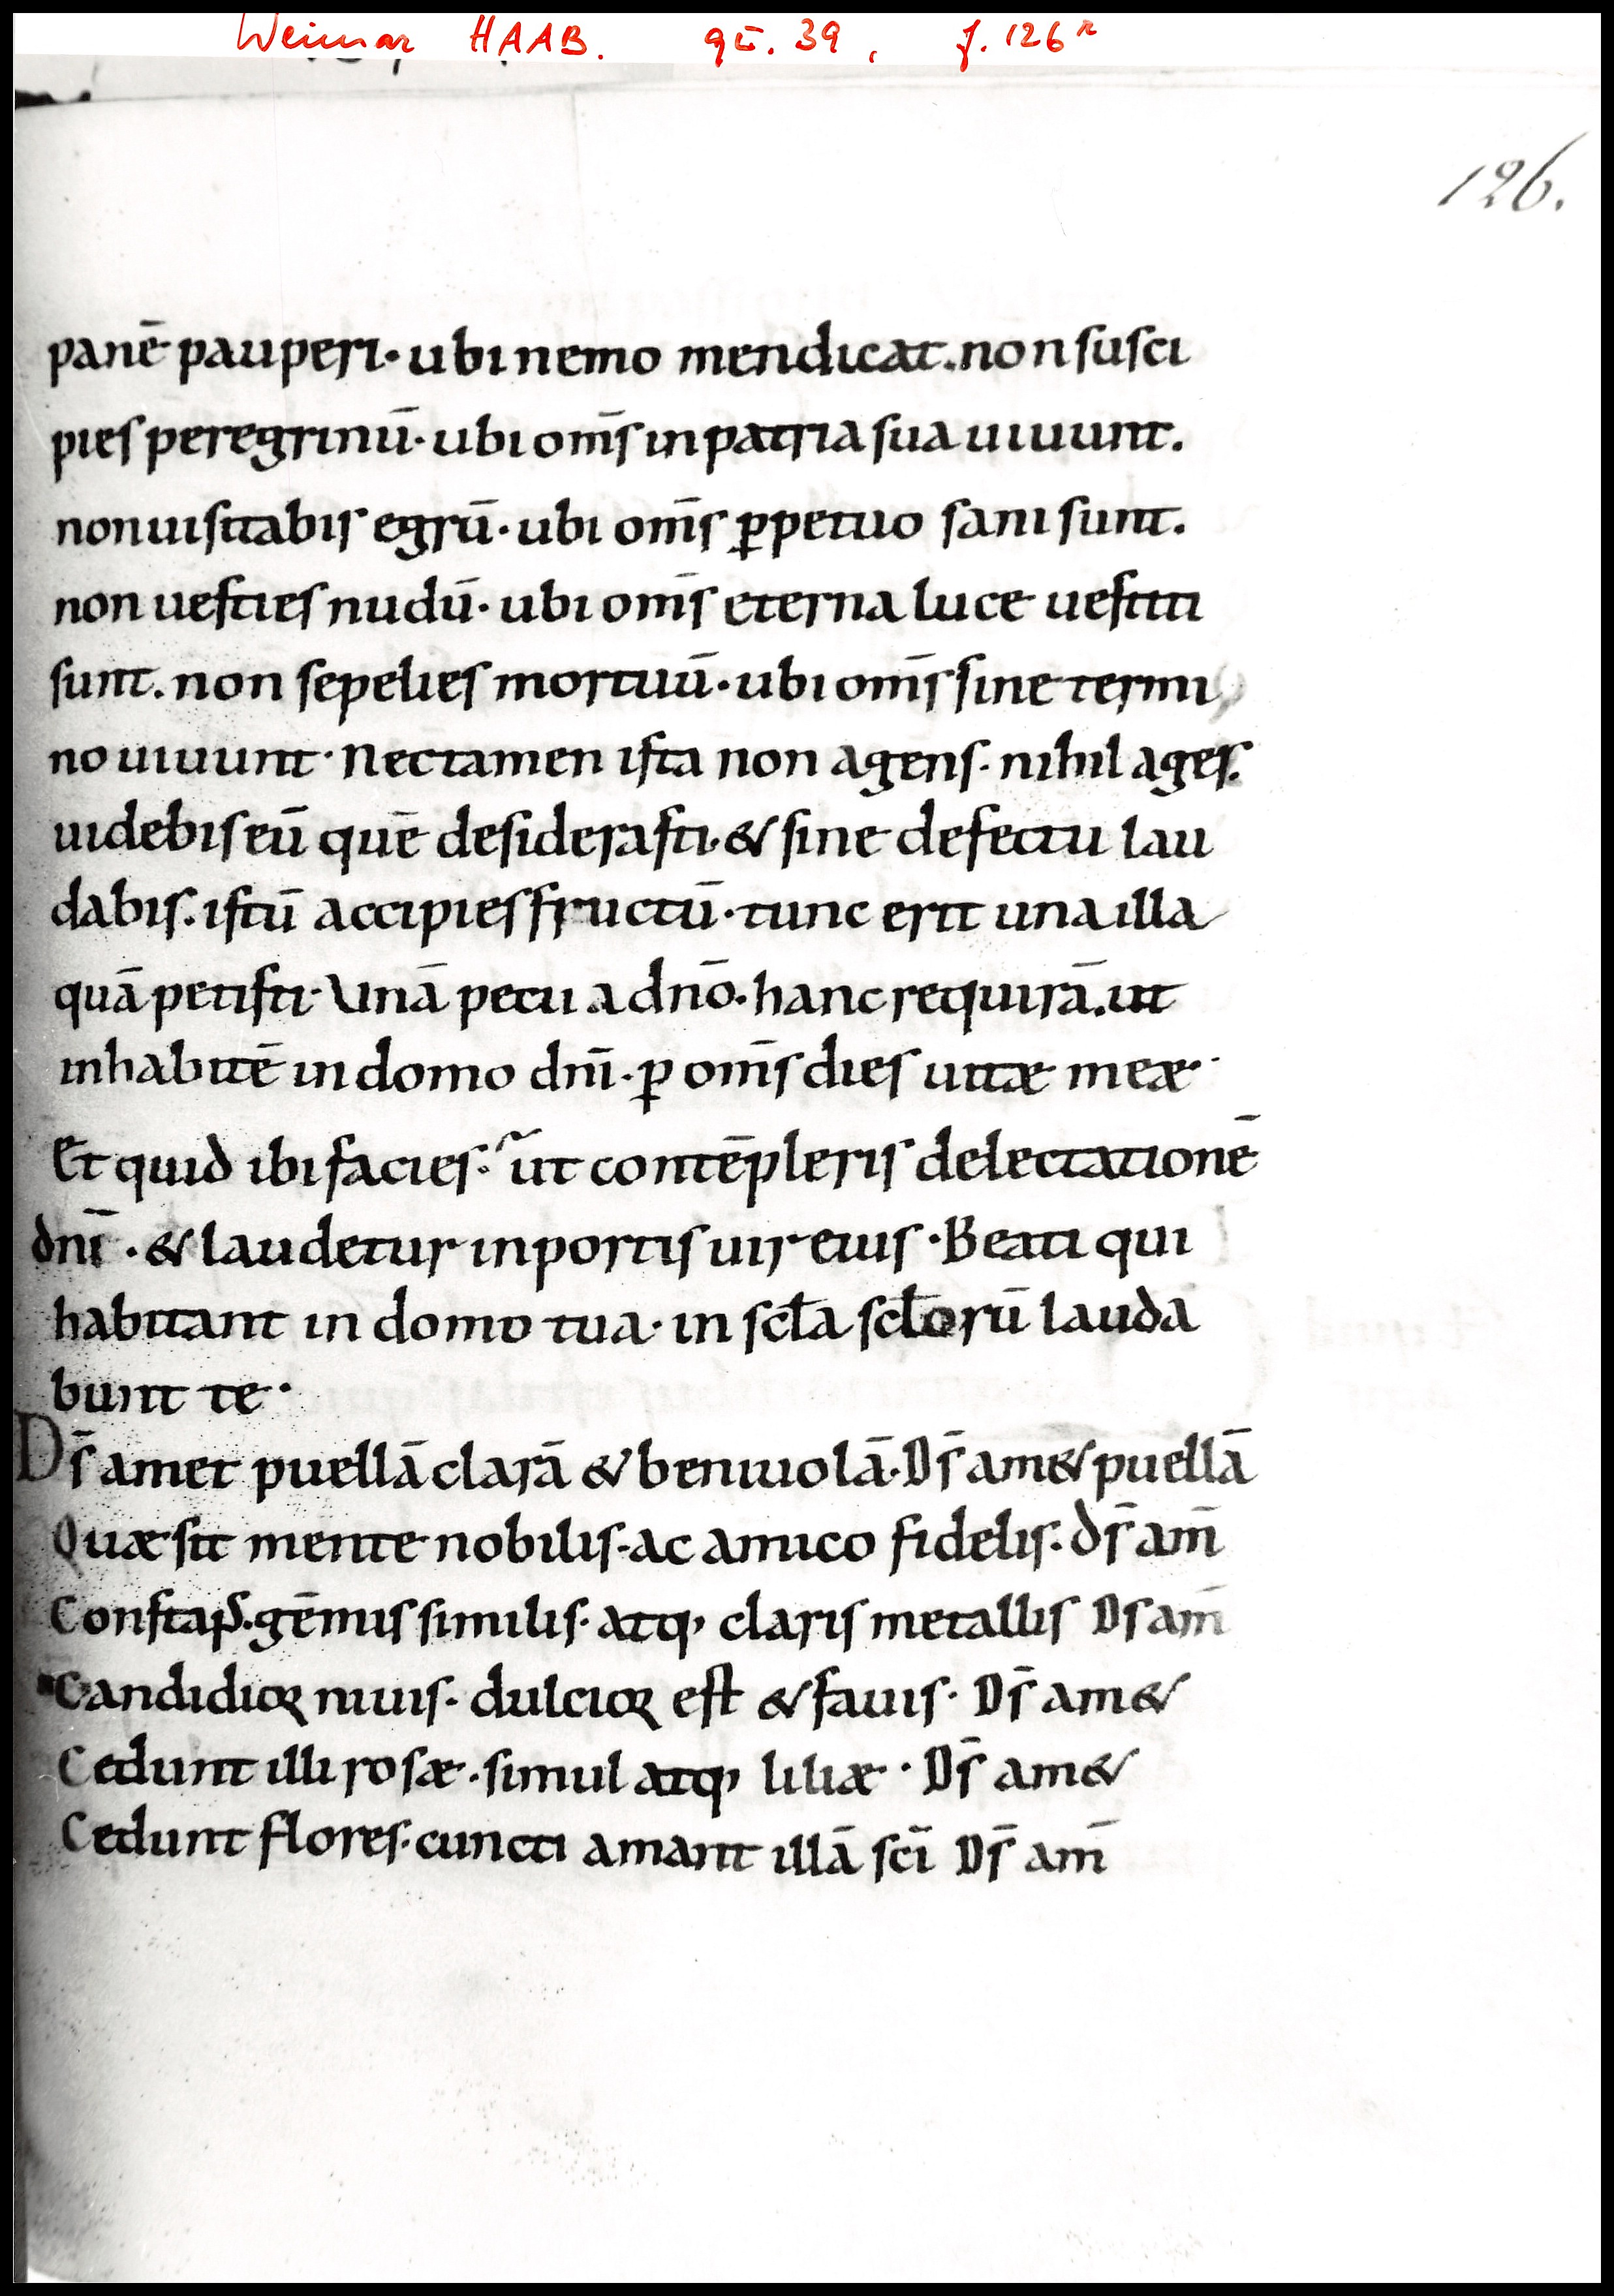 Weimar HAAB. qt. 39, f. 126r
126.
panē pauperi· ubi nemo mendicat. non susci
pies peregrinū· ubi om̄s in patria sua uiuunt.
non uisitabis egrū· ubi om̄s ꝑpetuo sani sunt.
non uesties nudū· ubi om̄s eterna luce uestiti
sunt. non sepelies mortuū· ubi om̄s sine termi
no uiuunt· Nec tamen ista non agens· nihil ages.
uidebis eū quē desiderasti· & sine defectu lau
dabis. istū accipies fructū· tunc erit una illa
quā petisti· Unā petii a dn̄o· hanc requirā. ut
inhabitē in domo dn̄i· ꝑ om̄s dies uitæ meæ·
Et quid ibi facies? ut contēpleris delectationē
dn̄i· & laudetur in portis uir eius· Beati qui
habitant in domo tua· in scl̄a scl̄orū lauda
bunt te·
Ds̄ amet puellā clarā & beniuolā· Ds̄ am& puellā
Quæ sit mente nobilis· ac amico fidelis· ds̄ am̄
Constaꝑ· gēmis similis· atq, claris metallis Ds am̄
Candidior niuis· dulcior est & fauis· Ds̄ am&
Cedunt illi rosæ· simul atq, liliæ· Ds̄ am&
Cedunt flores· cuncti amant illā sc̄i Ds̄ am̄